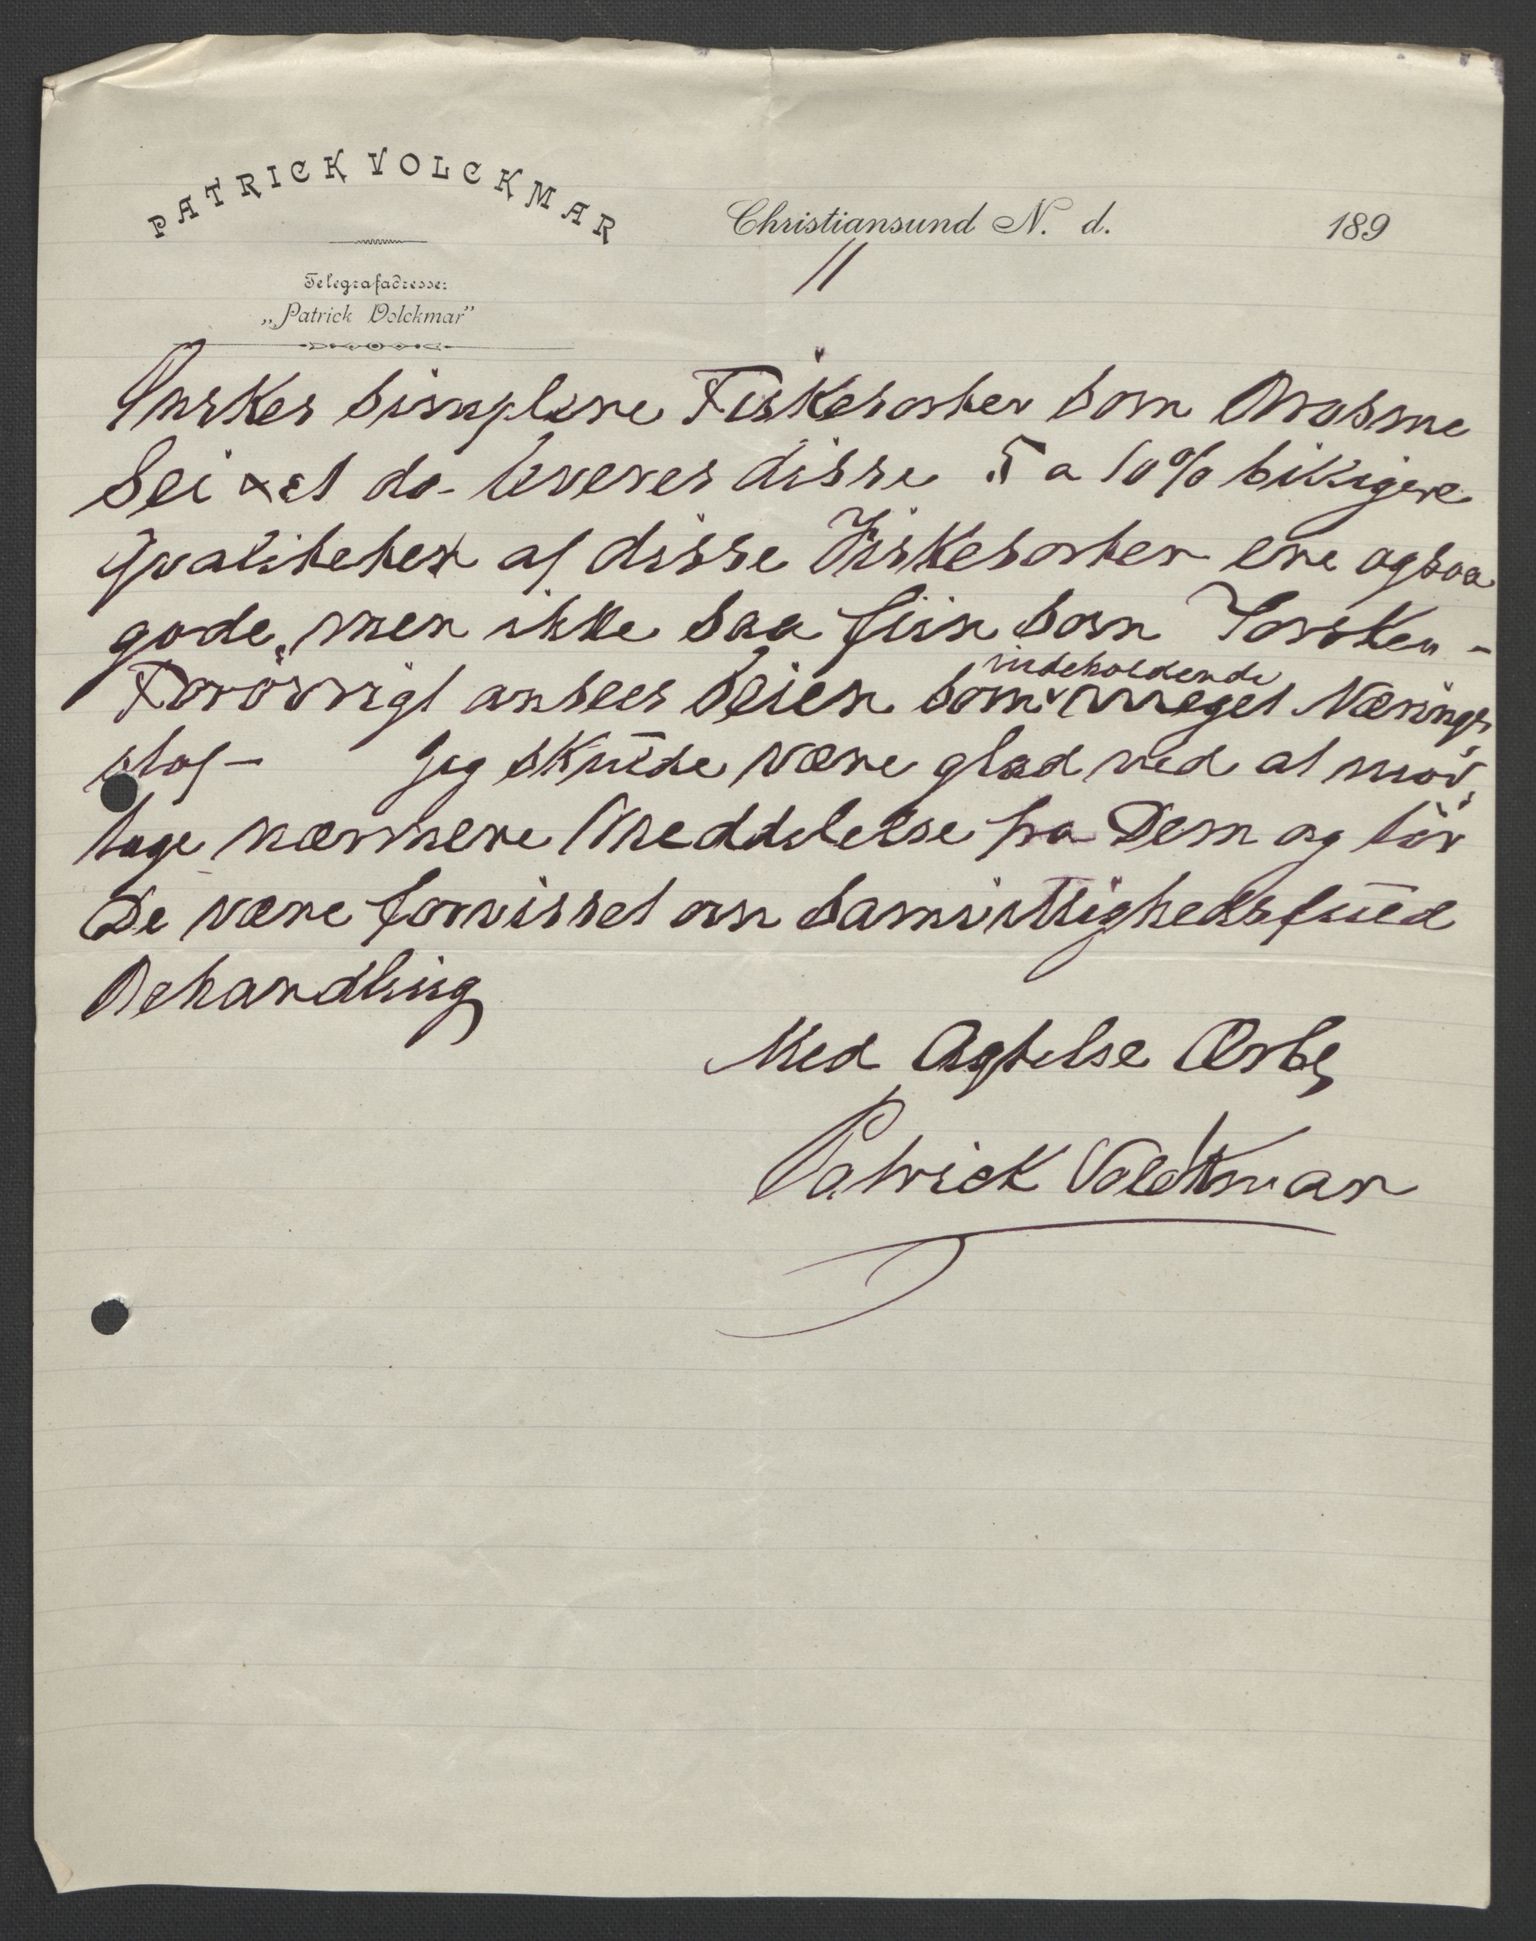 PATRICK VOLCKMAR
Christiansund N. d. 189
Telegrafadresse:
„Patrick Volckmar"
II
Önskes simplere Fiskesorter som Brosme
Sei et do- leveres disse 5 a 10% billigere
Qvaliteten af disse Fiskesorter ere ogsaa
gode, men ikke saa fiin som Torsken -
Forövrigt ansees Seien som indeholdende meget Nærings
stof - Jeg skulde være glad ved at mod,
tage nærmere Meddelelse fra Dem og tör
De være forvisset om samvittighedsfuld
Behandling
Med Agtelse Ærb,
Patrick Volckmar